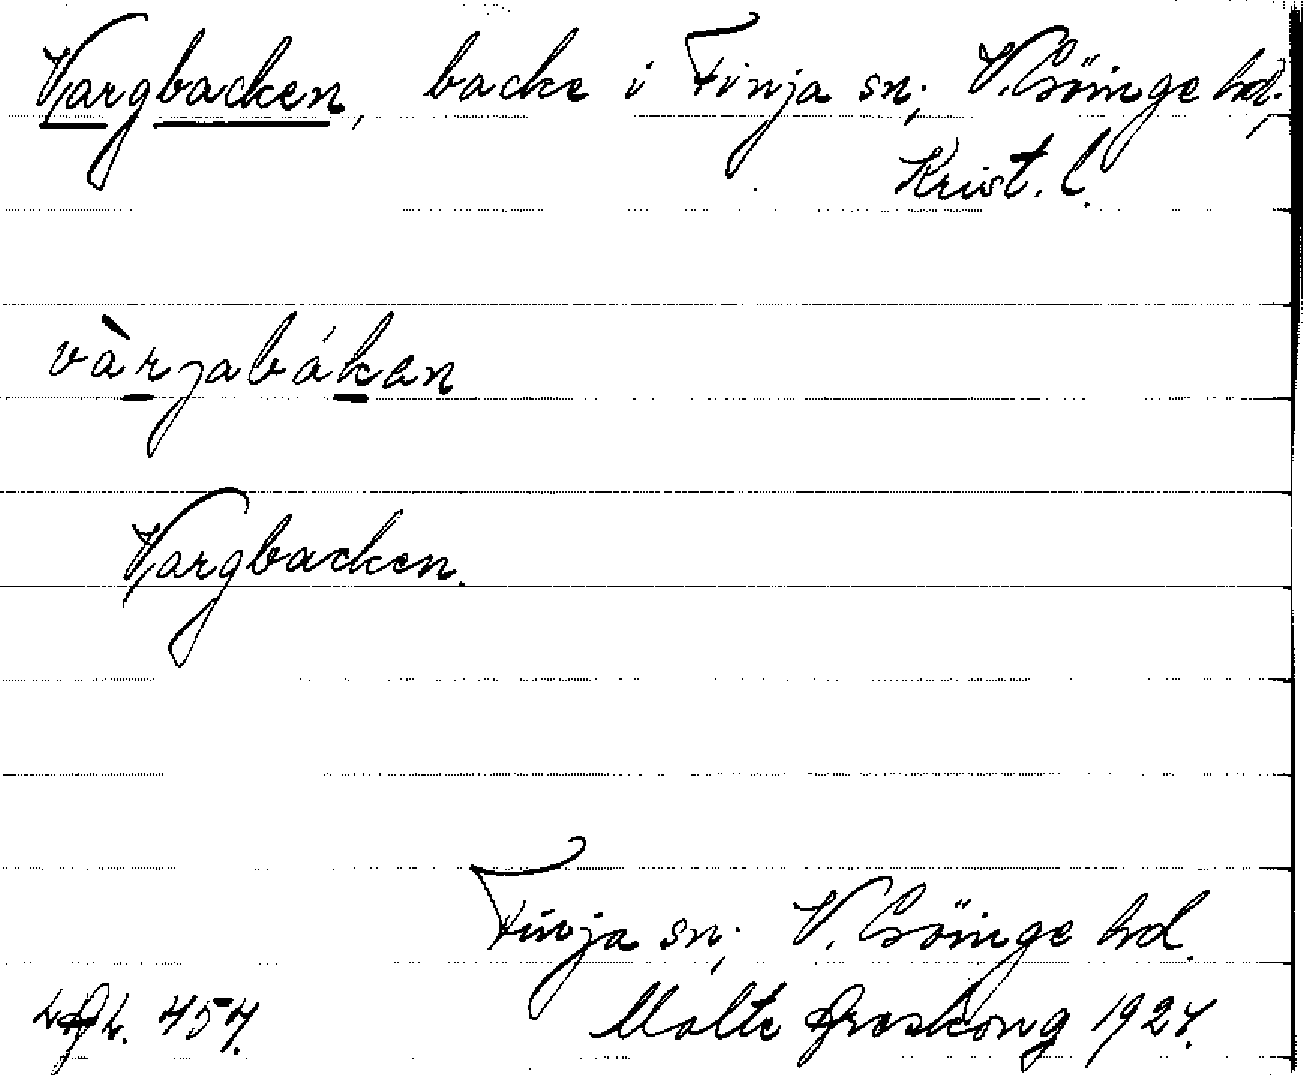 Vargbacken, backe i Finja sn; V. Göinge hd;
Krist. l.
vàrjabákan
Vargbacken.
Finja sn; V. Göinge hd.
Malte 1927.